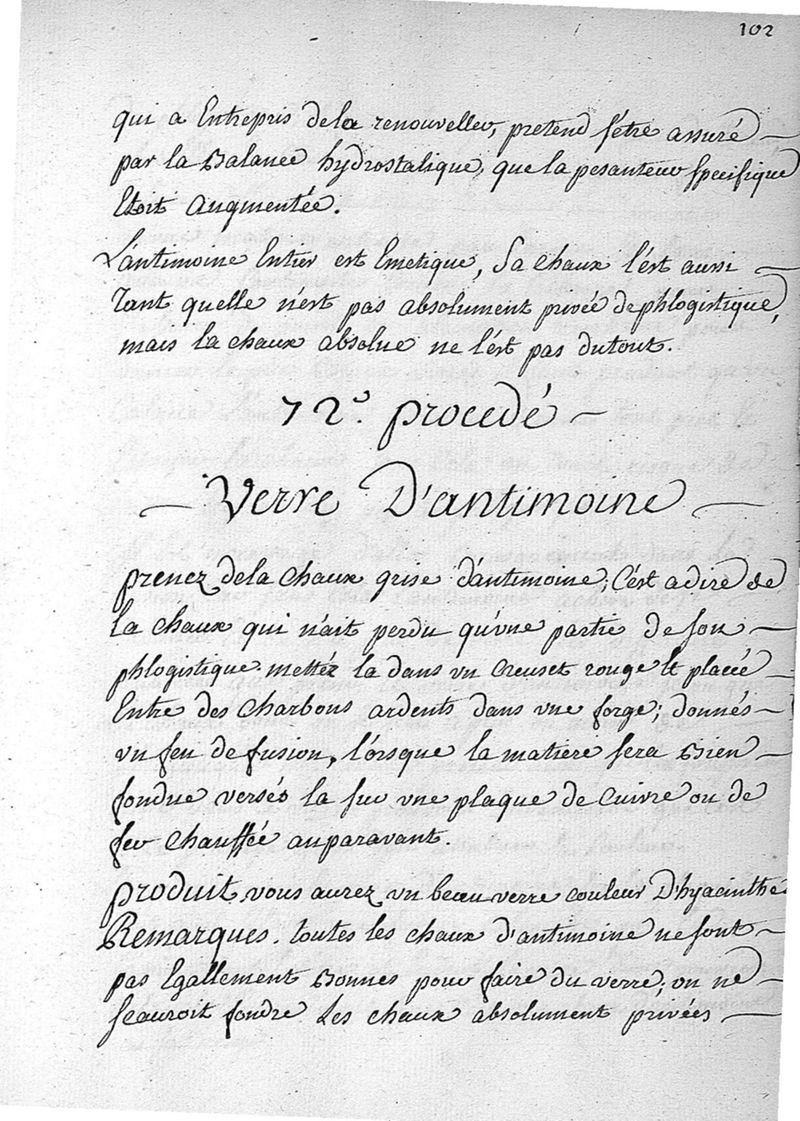 102
qui a Entrepris dela renouveller, pretend s'être assuré
par la Balance hydrostatique, que la pesanteur specifique
Etoit augmentée.
L'antimoine Entier est Emetique, Sa chaux l'est aussi
tant quelle n'est pas absolument privée de phlogistique,
mais la chaux absolue ne l'est pas dutout.
72.e procedé
Verre D'antimoine
prenez dela chaux grise d'antimoine; C'est adire de
la chaux qui n'ait perdu qu'une partie de son
phlogistique mettéz la dans un Creuset rouge Et placée
Entre des charbons ardents dans une forge; donnés
un feu de fusion, lorsque la matiere sera Bien
fondue versés la sur une plaque de Cuivre ou de
fer chauffée auparavant.
produit, vous aurez un beau verre couleur D'hyacinthe
Remarques. toutes les chaux d'antimoine ne sont
pas Egallement Bonnes pour faire du verre; on ne
scauroit fondre Les chaux absolument privées